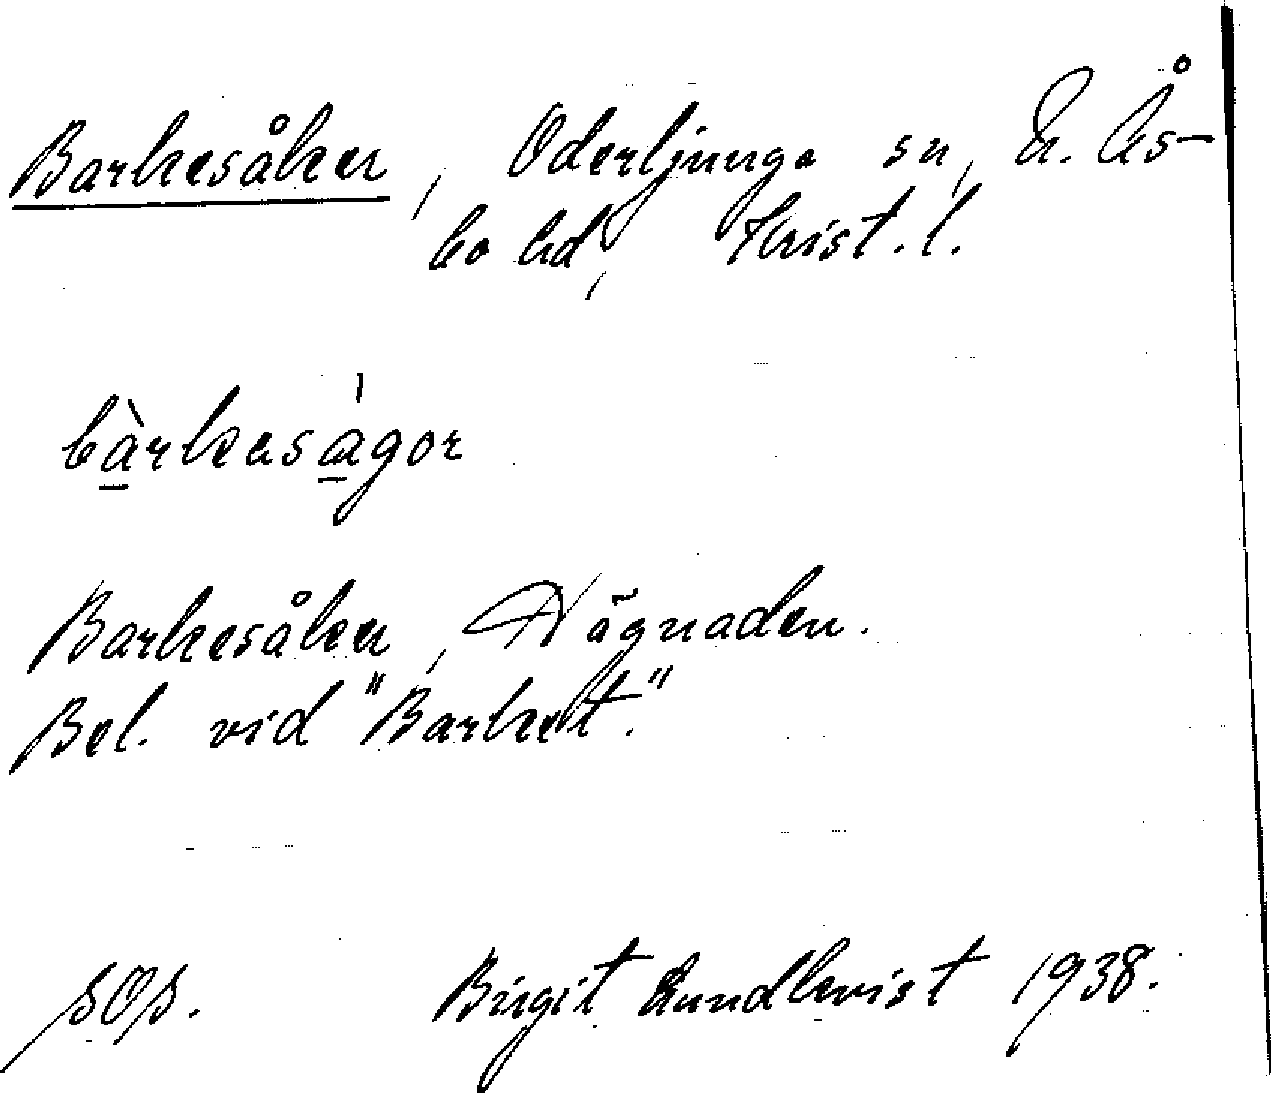 Barkesåker, Oderljunga sn, N. Ås-
bo hd, Krist. l.
bàrkasågor
Barkesåker, Hägnaden.
Bel. vid "Barket."
SOS. Birgit Lundkvist 1938.